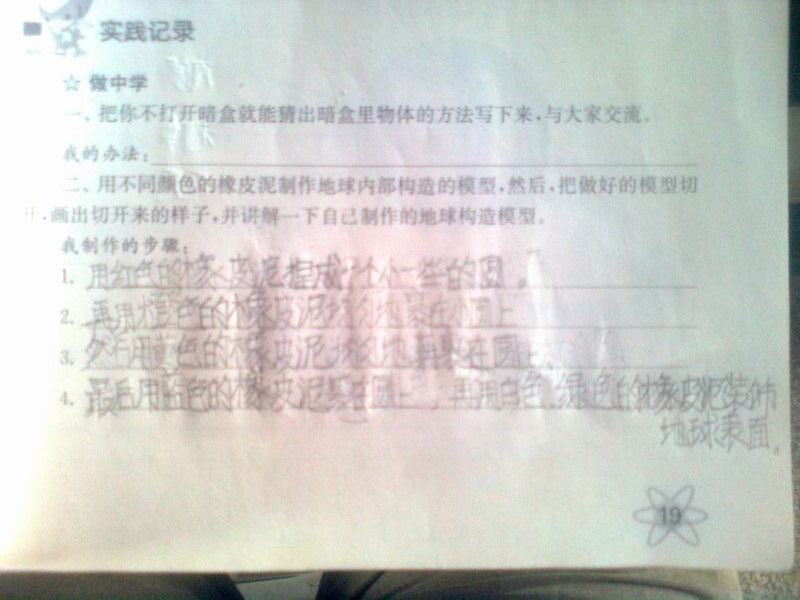 实践记录
☆ 做中学
一、把你不打开暗盒就能猜出暗盒里物体的方法写下来,与大家交流。
我的办法:
二、用不同颜色的橡皮泥制作地球内部构造的模型,然后,把做好的模型切
开,画出切开来的样子,并讲解一下自己制作的地球构造模型。
我制作的步骤:
1. 用红色的橡皮泥捏成一个小一些的圆。
2. 再用橙色的橡皮泥均匀地裹在小圆上
3. 然后用黄色的橡皮泥均匀地再裹在圆上、
4. 最后用蓝色的橡皮泥裹在圆上,再用白色、绿色的橡皮泥装饰
地球表面。
19